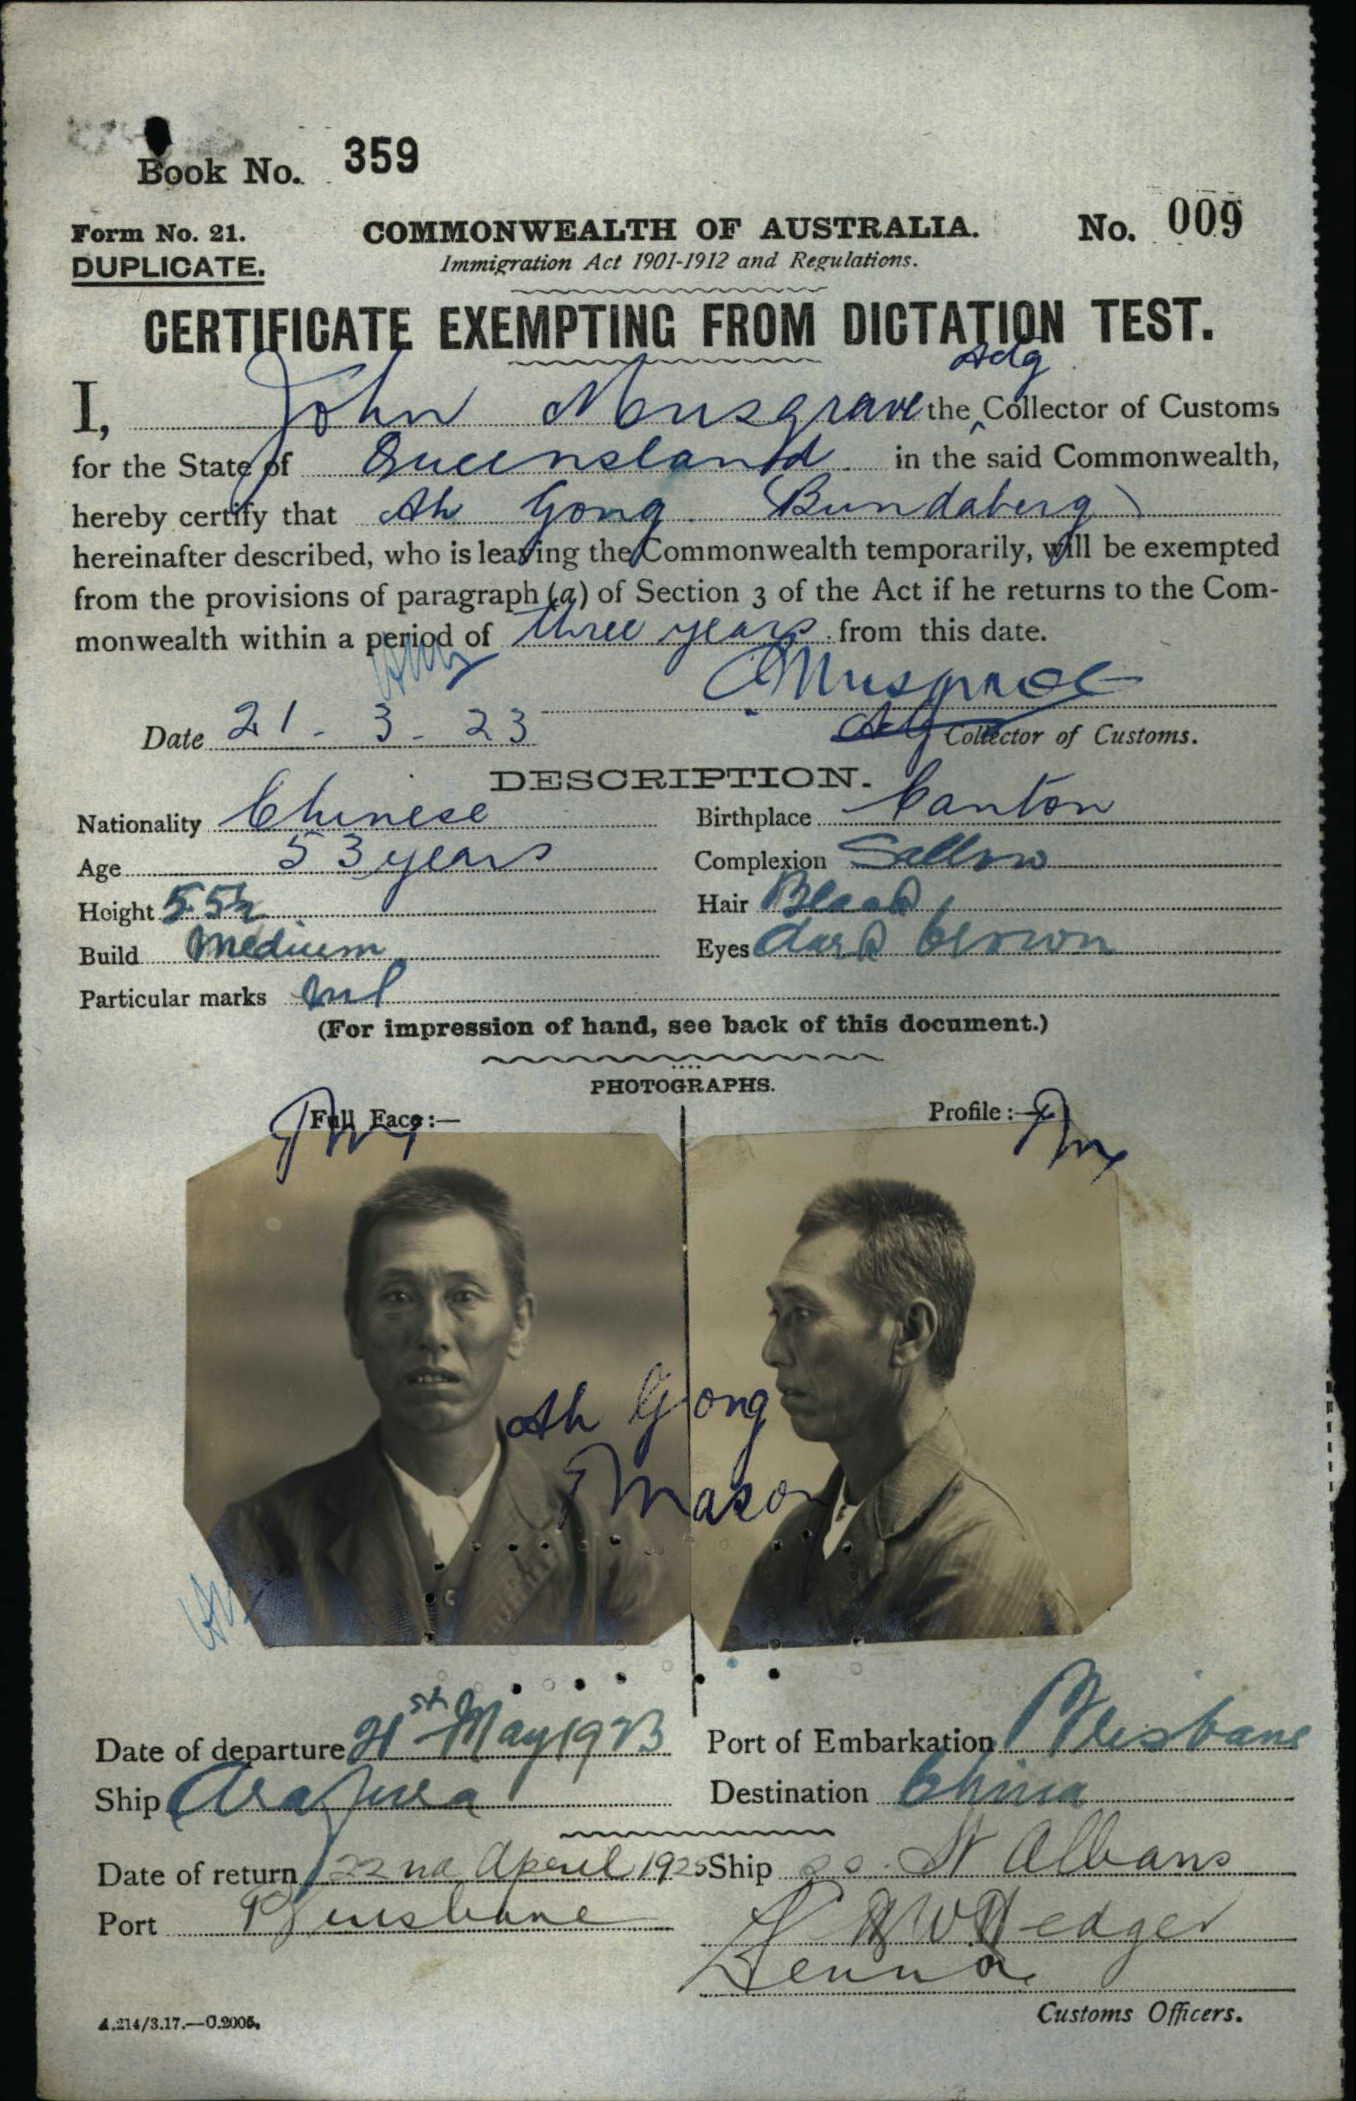 Book No. 359
Form No. 21. COMMONWEALTH OF AUSTRALIA. No. 009
DUPLICATE. Immigration Act 1901-1912 and Regulations.
CERTIFICATE EXEMPTING FROM DICTATION TEST.
Actg
I, John Musgrave the Collector of Customs
for the State of Queensland in the said Commonwealth,
hereby certify that Ah Gong (Bundaberg)
hereinafter described, who is leaving the Commonwealth temporarily, will be exempted
from the provisions of paragraph (a) of Section 3 of the Act if he returns to the Com-
monwealth within a period of three years from this date.
Musgrave
Date 21 - 3 - 23 Actg Collector of Customs.
DESCRIPTION.
Nationality Chinese Birthplace Canton
Age 53 years Complexion Sallow
Height 5.5½ Hair Black
Build Medium Eyes dark brown
Particular marks nil
(For impression of hand, see back of this document.)
PHOTOGRAPHS.
Full Face:— Profile:—
Ah Gong
Mason
Date of departure 21st May 1923 Port of Embarkation Brisbane
Ship Arafura Destination China
Date of return 22nd April 1925 Ship s.s. St Albans
Port Brisbane
Hedger
Customs Officers.
A.214/3.17.—C.2005.